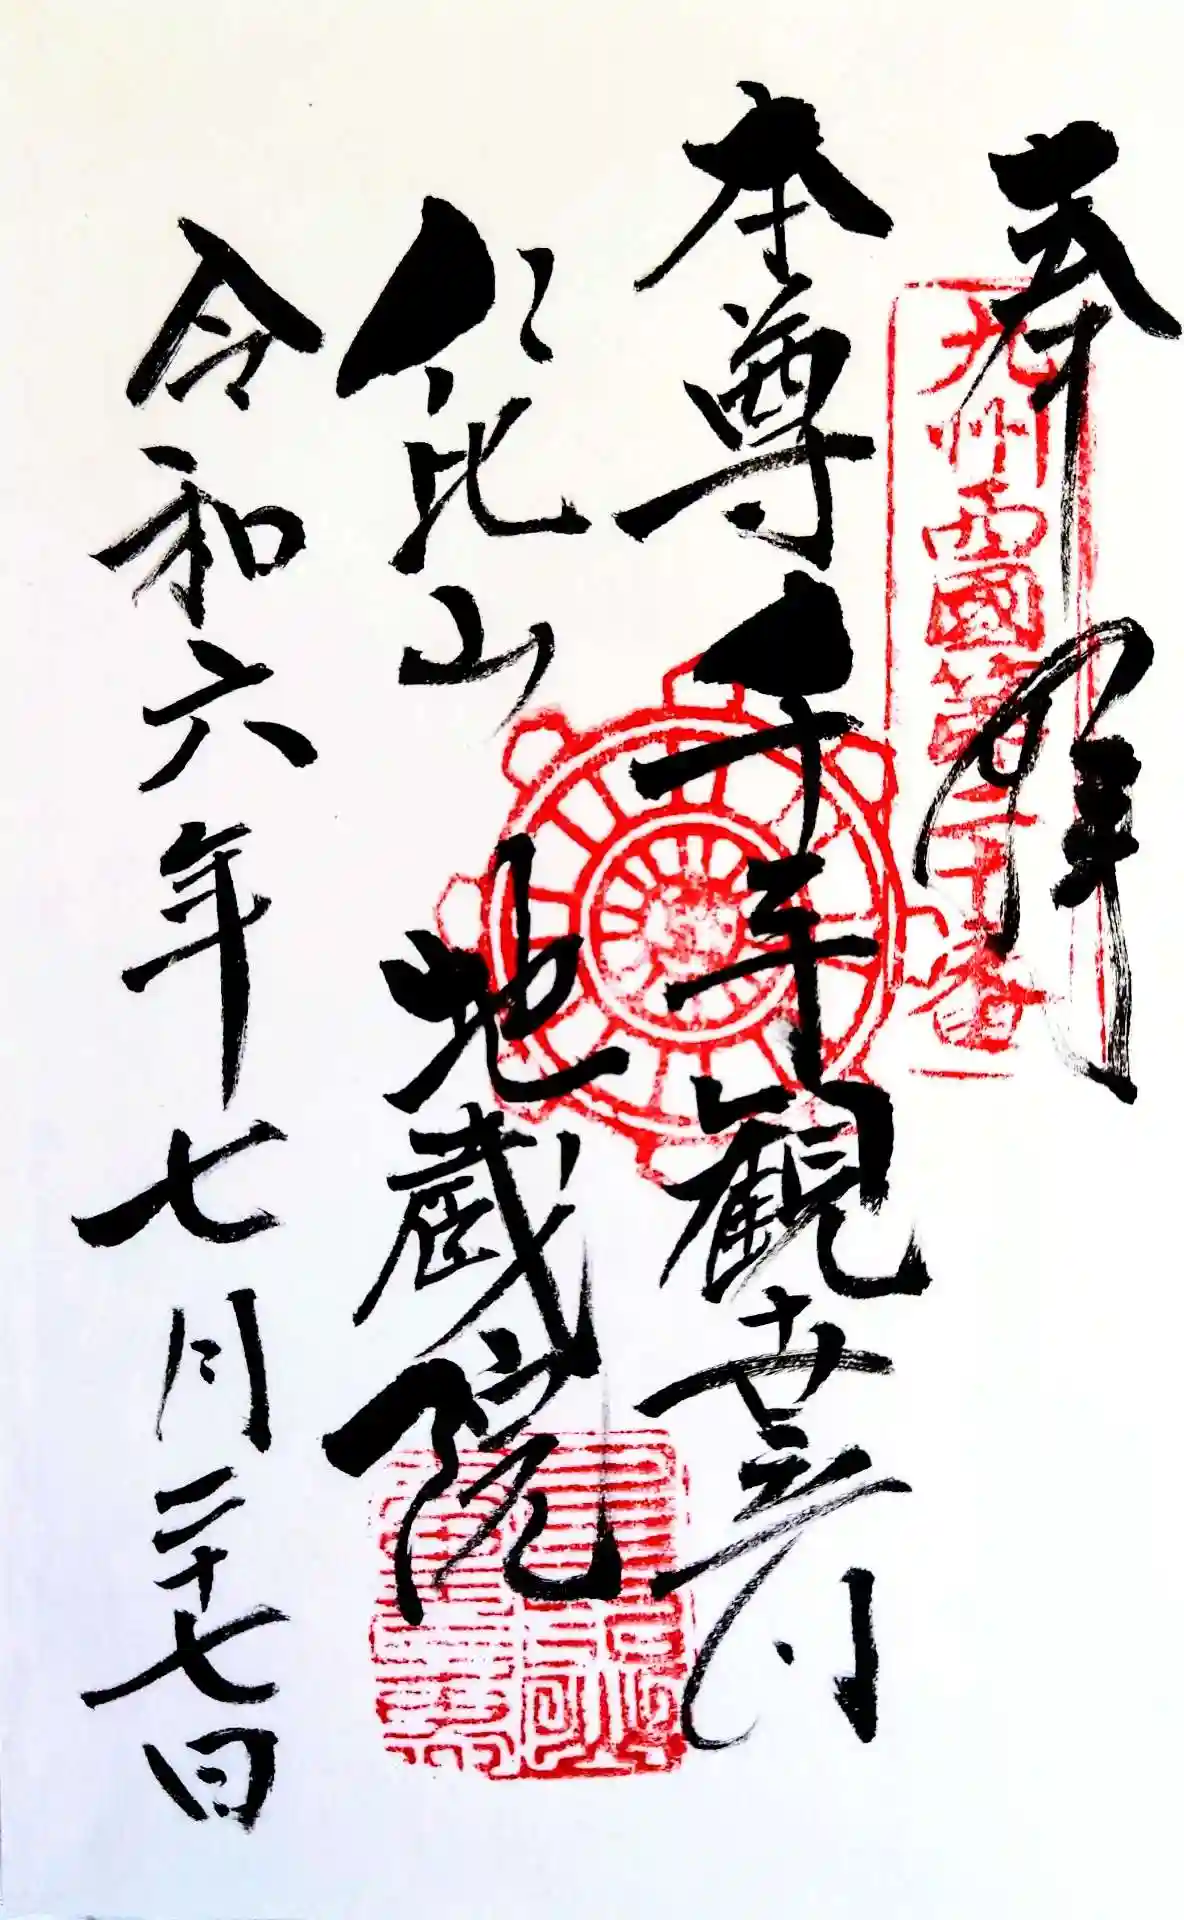 奉拝
九州西國第二十番
本尊千手観世音
仁比山
地蔵院
令和六年七月二十七日